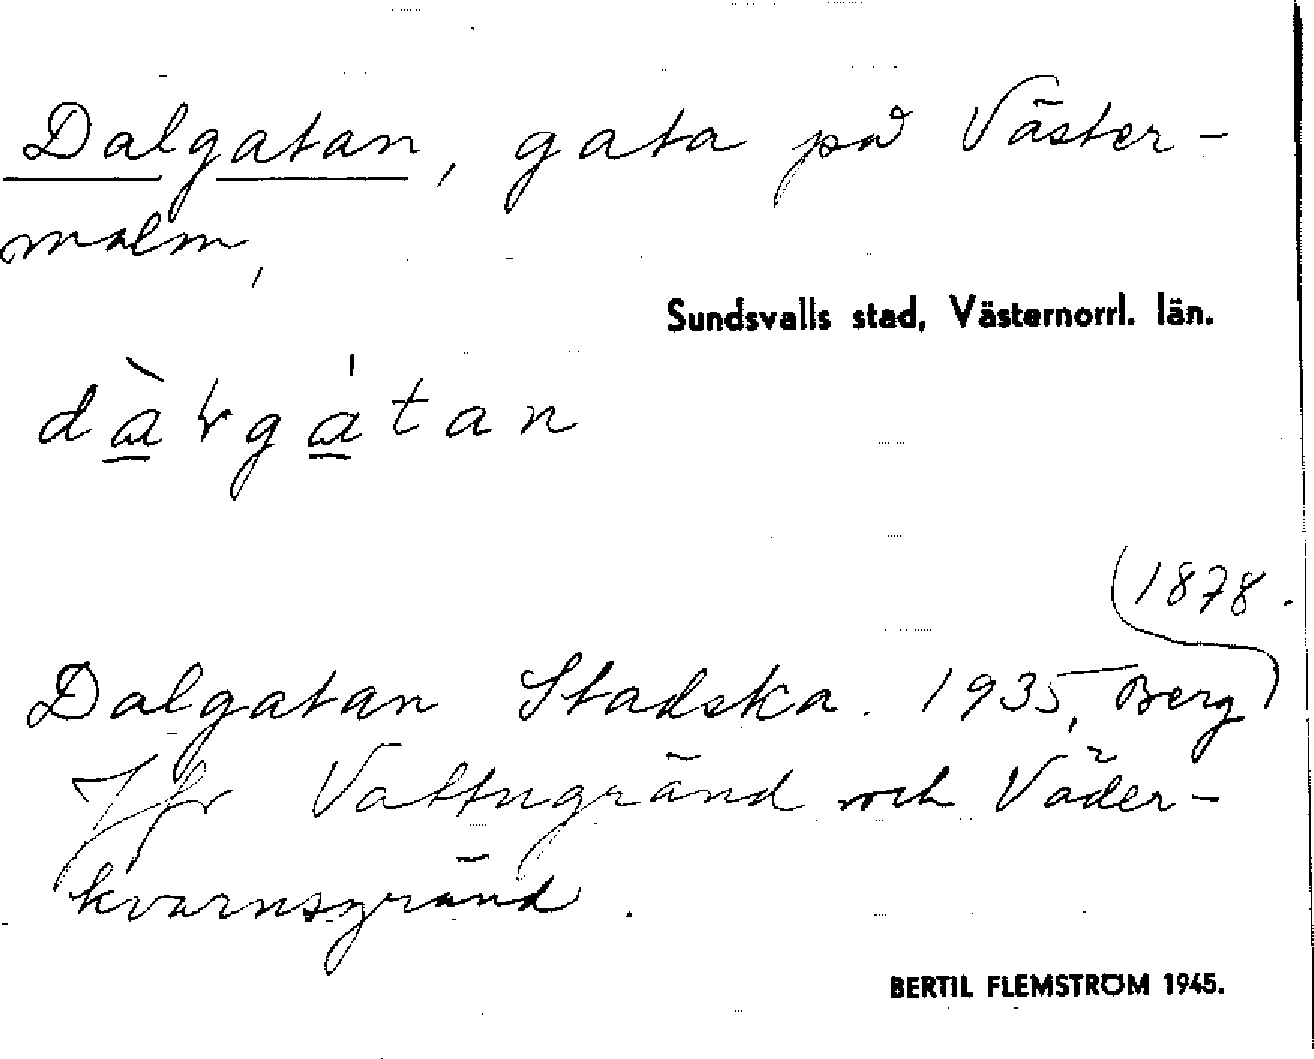 Dalgatan, gata på Väster-
malm,
Sundsvalls stad, Västernorrl. län.
dàƚgátan
(1878.
Dalgatan Stadska. 1935, Berg)
Jfr Vattugränd och Väder-
kvarnsgränd.
BERTIL FLEMSTRÖM 1945.